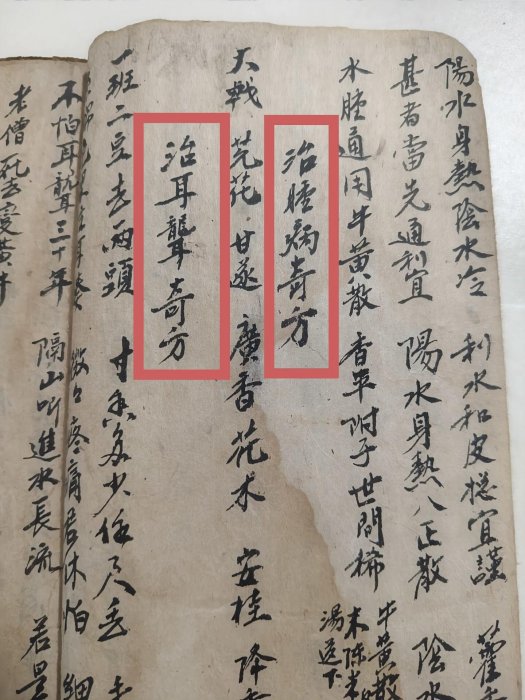 陽水身熱陰水冷 利水和皮穩宜謹 藿
甚者當先通利宜 陽水身熱八正散 陰水
水腫通用牛黃散 香平附子世間稀 牛黃散
末陳米
湯送下
治腫病奇方
大戟 芫花 甘遂 廣香 花木 安桂 降
治耳聾奇方
一班二豆去兩頭 寸香多少任君
痛君休怕 細
不怕耳聾三十年 隔山叫進水長流 若是
老僧